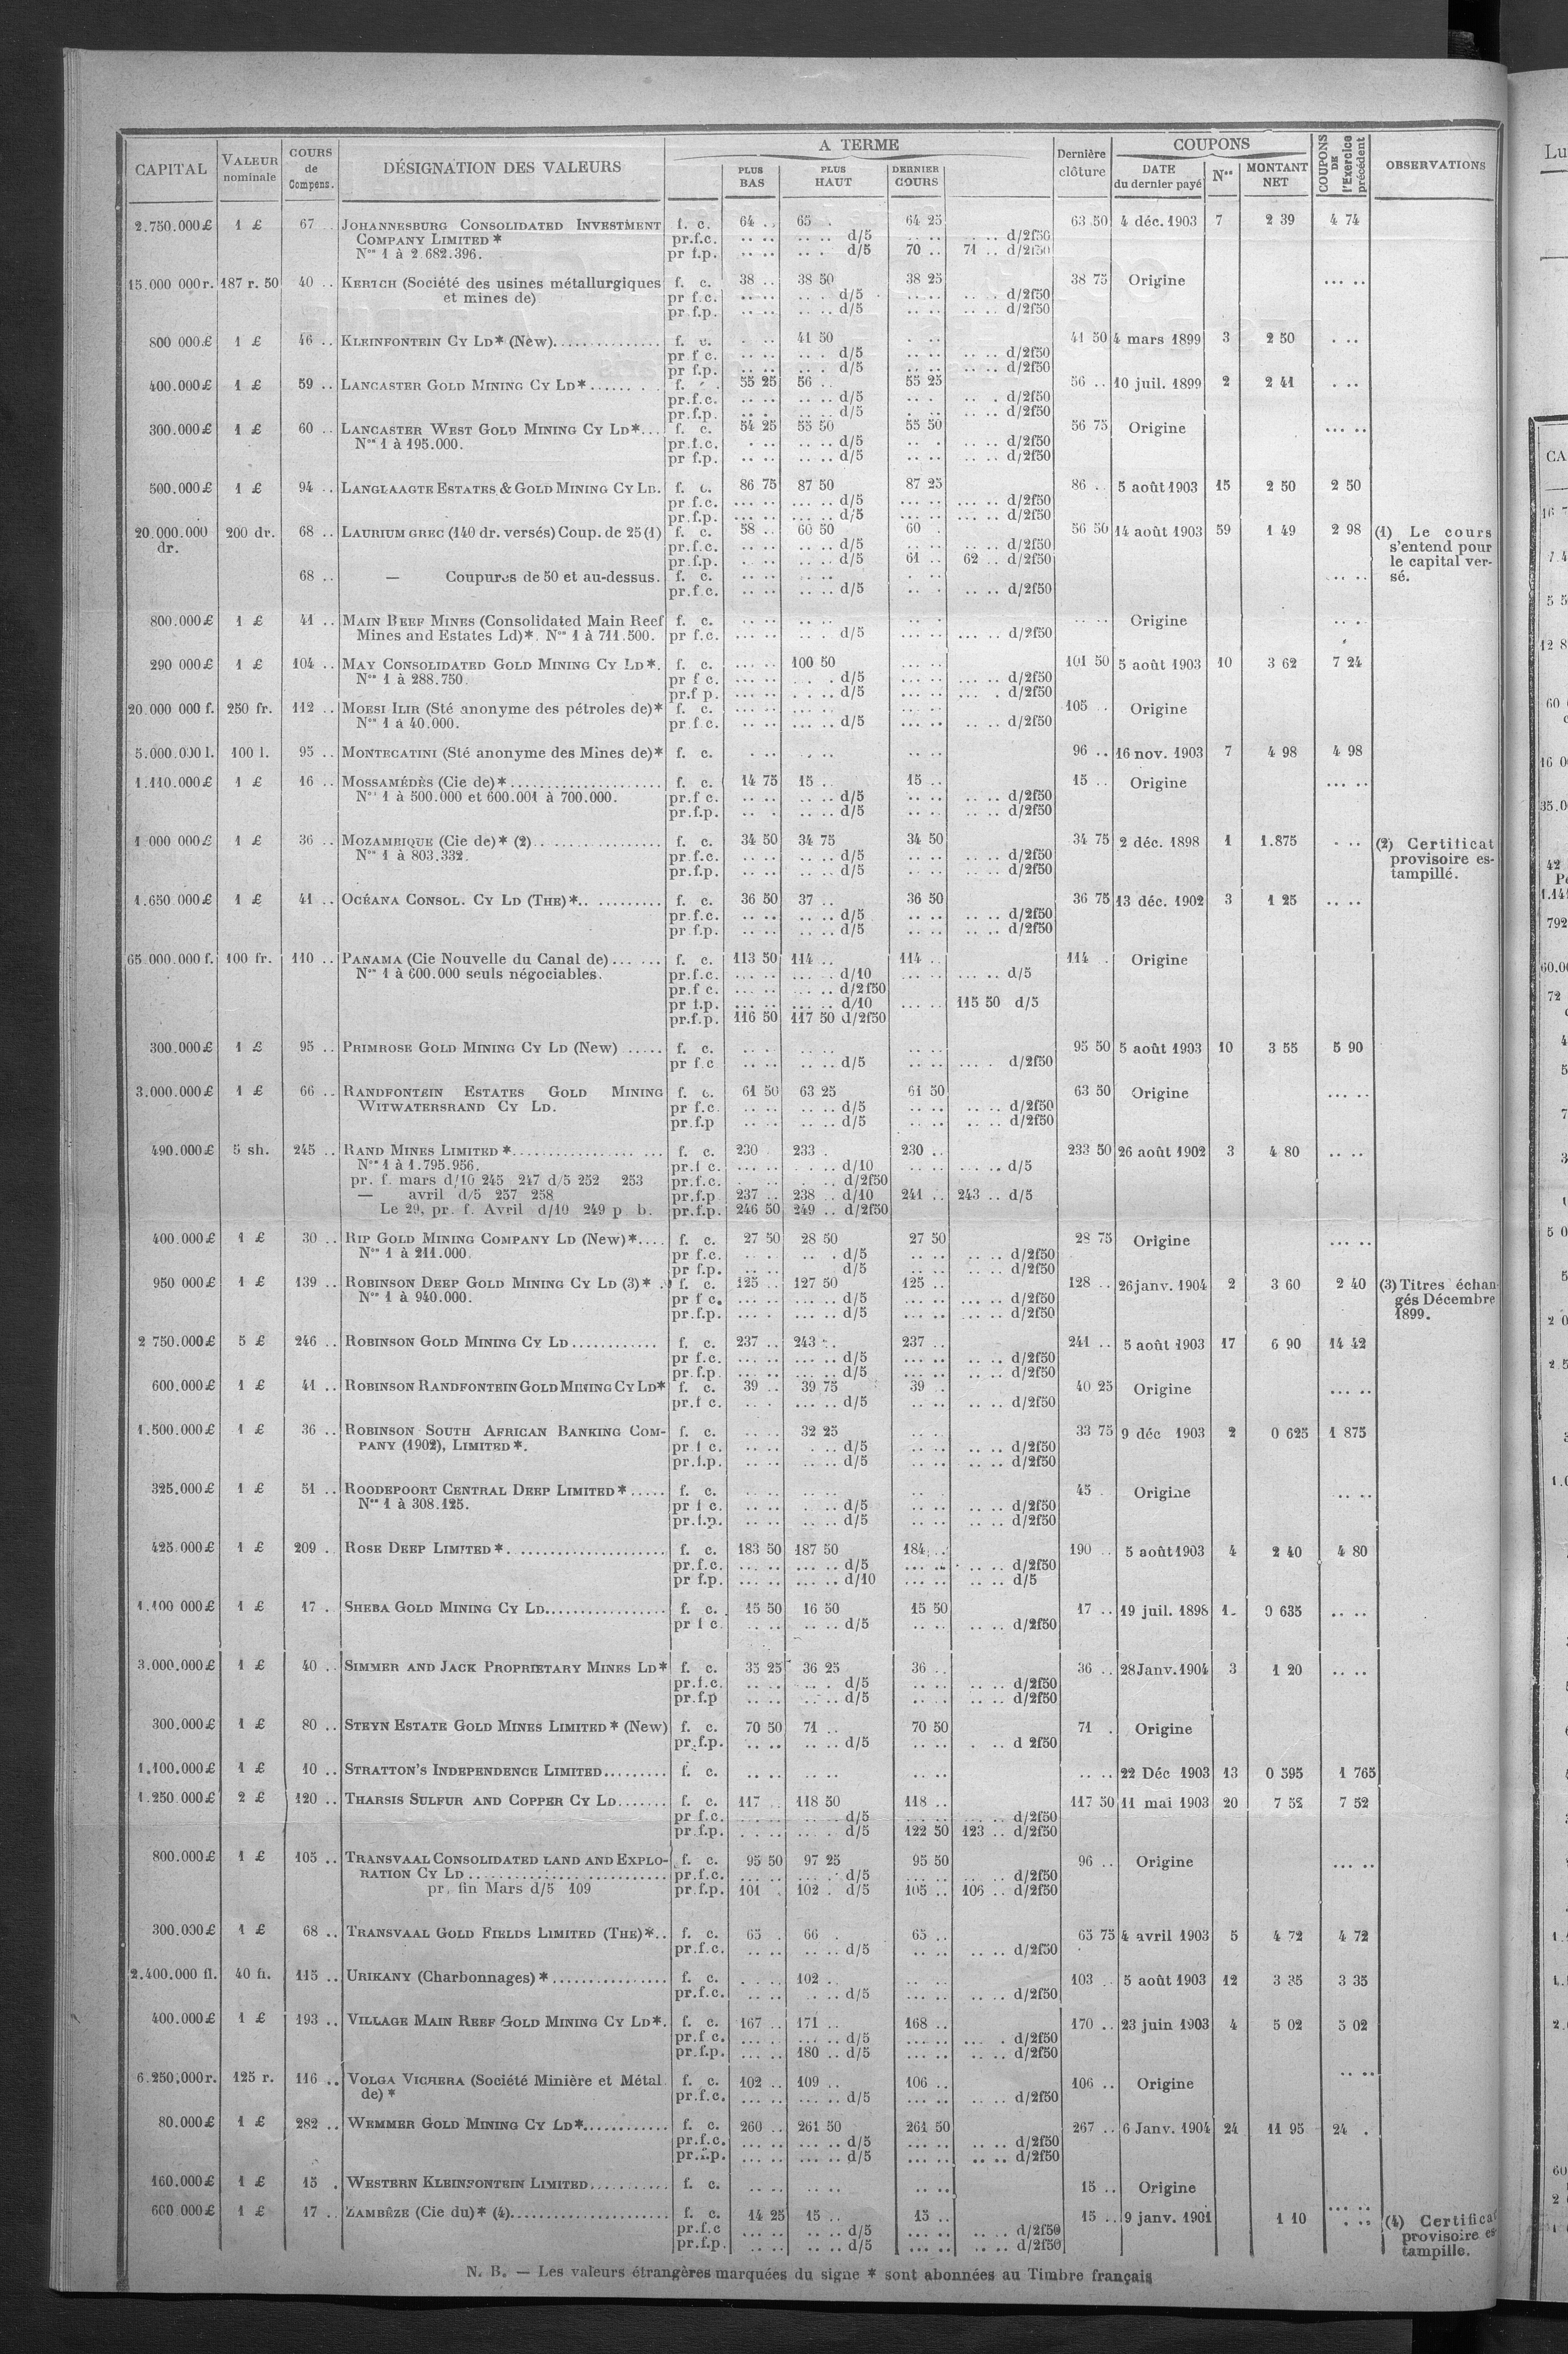 CAPITAL VALEUR nominale COURS de Compens. DÉSIGNATION DES VALEURS A TERME PLUS BAS PLUS HAUT DERNIER COURS Dernière clôture COUPONS DATE du dernier payé Nos MONTANT NET COUPONS DE l'Exercice précédent OBSERVATIONS
2.750.000£ 1 £ 67 JOHANNESBURG CONSOLIDATED INVESTMENT f. c. 64 .. 65 . 64 25 63 50 4 déc. 1903 7 2 39 4 74
COMPANY LIMITED * pr.f.c. .. .. .. .. d/5 .. .. .. .. d/2f50
Nos 1 à 2.682.396. pr f.p. .. .. .. . d/5 70 .. 71 .. d/2f50
15.000 000r. 187 r. 50 40 .. KERTCH (Société des usines métallurgiques f. c. 38 .. 38 50 38 25 38 75 Origine ... ..
et mines de) pr f.c. .. .. .. . d/5 .. .. .. . d/2f50
pr f.p. .. .. .. .. d/5 .. .. .. .. d/2f50
800 000£ 1 £ 46 .. KLEINFONTEIN CY LD* (New).............. f. c. . .. 41 50 . .. 41 50 4 mars 1899 3 2 50 . ..
pr f c. .. .. .. . d/5 .. .. .. .. d/2f50
pr f.p. .. .. .. . d/5 .. .. .. .. d/2f50
400.000£ 1 £ 59 .. LANCASTER GOLD MINING CY LD*...... . . f. . 55 25 56 .. 55 25 56 .. 10 juil. 1899 2 2 41 . ..
pr.f.c. .. .. .. .. d/5 .. . .. . d/2f50
pr.f.p. .. . .. .. d/5 . .. .. .. d/2f50
300.000£ 1 £ 60 .. LANCASTER WEST GOLD MINING CY LD*... f. c. 54 25 55 50 55 50 56 75 Origine ... ..
Nos 1 à 195.000. pr.f.c. . .. .. .. d/5 .. . .. .. d/2f50
pr f.p. .. .. .. .. d/5 .. .. .. .. d/2f50
500.000£ 1 £ 94 .. LANGLAAGTE ESTATES & GOLD MINING CY LD. f. c. 86 75 87 50 87 25 86 .. 5 août 1903 15 2 50 2 50
pr f.c. ... .. ... .. d/5 ... .. ... .. d/2f50
pr.f.p. ... .. ... .. d/5 ... .. ... .. d/2f50
20.000.000 200 dr. 68 .. LAURIUM GREC (140 dr. versés) Coup. de 25 (1) f. c. 58 .. 60 50 60 . 56 50 14 août 1903 59 1 49 2 98 (1) Le cours
dr. pr.f.c. .. .. .. .. d/5 .. .. .. .. d/2f50 s'entend pour
pr.f.p. .. .. .. .. d/5 61 .. 62 .. d/2f50 le capital ver-
68 .. — Coupures de 50 et au-dessus. f. c. .. .. .. .. . .. ... .. sé.
pr.f.c. .. .. .. .. d/5 .. . .. .. d/2f50
800.000£ 1 £ 41 .. MAIN REEF MINES (Consolidated Main Reef f. c. .. .. .. .. .. .. .. .. Origine .. .
Mines and Estates Ld)*. Nos 1 à 711.500. pr f.c. ... .. .. . d/5 ... .. ... .. d/2f50
290 000£ 1 £ 104 .. MAY CONSOLIDATED GOLD MINING CY LD*. f. c. ... .. 100 50 ... .. 101 50 5 août 1903 10 3 62 7 24
Nos 1 à 288.750. pr f c. ... .. . . . d/5 ... .. ... .. d/2f50
pr.f p. ... .. . .. . d/5 ... .. ... . d/2f50
20.000 000 f. 250 fr. 112 .. MOESI ILIR (Sté anonyme des pétroles de)* f. c. ... .. ... .. ... .. 105 .. Origine
Nos 1 à 40.000. pr f.c. ... .. ... .. d/5 ... .. .. .. d/2f50
5.000.000 l. 100 l. 95 .. MONTECATINI (Sté anonyme des Mines de)* f. c. . .. . .. .. .. 96 .. 16 nov. 1903 7 4 98 4 98
1.110.000£ 1 £ 16 .. MOSSAMÉDÈS (Cie de)*...................... f. c. 14 75 15 .. 15 .. 15 .. Origine ... ..
Nos 1 à 500.000 et 600.001 à 700.000. pr.f c. .. .. .. .. d/5 .. .. .. .. d/2f50
pr.f.p. .. . .. .. d/5 .. .. .. .. d/2f50
1 000 000£ 1 £ 36 .. MOZAMBIQUE (Cie de)* (2).................. f. c. 34 50 34 75 34 50 34 75 2 déc. 1898 1 1.875 . .. (2) Certificat
Nos 1 à 803.332. pr.f.c. .. .. .. .. d/5 .. .. .. .. d/2f50 provisoire es-
pr.f.p. .. .. .. .. d/5 .. .. .. .. d/2f50 tampillé.
1.650 000£ 1 £ 41 .. OCÉANA CONSOL. CY LD (THE)*.. .......... f. c. 36 50 37 .. 36 50 36 75 13 déc. 1902 3 1 25 .. ..
pr.f.c. .. .. .. .. d/5 .. .. .. .. d/2f50
pr f.p. .. .. .. .. d/5 .. .. .. .. d/2f50
65.000.000 f. 100 fr. 110 .. PANAMA (Cie Nouvelle du Canal de)...... f. c. 113 50 114 .. 114 .. 114 . Origine
Nos 1 à 600.000 seuls négociables. pr.f.c. ... .. ... .. d/10 ... .. ... .. d/5
pr.f c. ... .. ... .. d/2f50
pr f.p. ... .. ... .. d/10 ... .. 115 50 d/5
pr.f.p. 116 50 117 50 d/2f50
300.000£ 1 £ 95 .. PRIMROSE GOLD MINING CY LD (New) ..... f. c. .. .. .. .. .. .. 95 50 5 août 1903 10 3 55 5 90
pr f.c .. .. .. .. d/5 .. .. ... . d/2f50
3.000.000£ 1 £ 66 .. RANDFONTEIN ESTATES GOLD MINING f. c. 61 50 63 25 61 50 63 50 Origine ... ..
WITWATERSRAND CY LD. pr f.c. .. .. .. .. d/5 .. .. .. .. d/2f50
pr.f.p .. .. .. .. d/5 .. .. .. .. d/2f50
490.000£ 5 sh. 245 .. RAND MINES LIMITED *................ ... f. c. 230 . 233 . 230 .. 233 50 26 août 1902 3 4 80 .. ..
Nos 1 à 1.795.956. pr.f c. ... .. . .. d/10 .. .. ... .. d/5
pr. f. mars d/10 245 247 d/5 252 253 pr.f.c. . . .. . .. d/2f50
— avril d/5 257 258 pr.f.p 237 .. 238 .. d/10 241 .. 243 .. d/5
Le 29, pr. f. Avril d/10 249 p b. pr.f.p. 246 50 249 .. d/2f50
400.000£ 1 £ 30 .. RIP GOLD MINING COMPANY LD (New)*.... f. c. 27 50 28 50 27 50 28 75 Origine ... ..
Nos 1 à 211.000. pr f.c. .. . .. . d/5 .. .. .. .. d/2f50
pr f.p. .. .. d/5 .. .. .. .. d/2f50
950 000£ 1 £ 139 .. ROBINSON DEEP GOLD MINING CY LD (3)* .. f. c. 125 .. 127 50 125 .. 128 .. 26 janv. 1904 2 3 60 2 40 (3) Titres échan-
Nos 1 à 940.000. pr f c. ... .. ... .. d/5 ... .. ... .. d/2f50 gés Décembre
pr.f.p. ... . ... .. d/5 ... .. ... .. d/2f50 1899.
2 750.000£ 5 £ 246 .. ROBINSON GOLD MINING CY LD ............ f. c. 237 .. 243 .. 237 .. 241 .. 5 août 1903 17 6 90 14 42
pr f.c. ... .. ... .. d/5 ... .. .. .. d/2f50
pr.f.p. ... .. ... .. d/5 ... .. .. .. d/2f50
600.000£ 1 £ 41 .. ROBINSON RANDFONTEIN GOLD MINING CY LD* f. c. 39 .. 39 75 39 .. 40 25 Origine ... ..
pr.f c. .. . ... .. d/5 .. .. .. .. d/2f50
1.500.000£ 1 £ 36 .. ROBINSON SOUTH AFRICAN BANKING COM- f. c. .. .. 32 25 .. .. 33 75 9 déc 1903 2 0 625 1 875
PANY (1902), LIMITED*. pr f c. .. .. . .. d/5 .. .. .. .. d/2f50
pr.f.p. .. .. .. .. d/5 .. .. .. .. d/2f50
325.000£ 1 £ 51 .. ROODEPOORT CENTRAL DEEP LIMITED*..... f. c. .. .. .. .. .. . 45 . Origine .. ..
Nos 1 à 308.125. pr f c. .. .. . .. d/5 .. .. .. .. d/2f50
pr.f.p. .. .. .. .. d/5 .. .. .. .. d/2f50
425.000£ 1 £ 209 .. ROSE DEEP LIMITED*. .................... f. c. 183 50 187 50 184 .. 190 .. 5 août 1903 4 2 40 4 80
pr.f.c. ... .. ... .. d/5 ... .. .. .. d/2f50
pr f.p. ... .. ... .. d/10 ... .. .. .. d/5
1.100 000£ 1 £ 17 . SHEBA GOLD MINING CY LD................. f. c. 15 50 16 50 15 50 17 .. 19 juil. 1898 1 0 635 .. ..
pr f c. .. .. .. .. d/5 .. .. .. .. d/2f50
3.000.000£ 1 £ 40 .. SIMMER AND JACK PROPRIETARY MINES LD* f. c. 35 25 36 25 36 .. 36 .. 28 Janv. 1904 3 1 20 .. ..
pr.f.c. .. .. .. . d/5 .. .. .. .. d/2f50
pr.f.p .. .. .. .. d/5 .. .. .. .. d/2f50
300.000£ 1 £ 80 .. STEYN ESTATE GOLD MINES LIMITED* (New) f. c. 70 50 71 .. 70 50 71 . Origine
pr.f.p. .. .. .. .. d/5 .. .. . .. d 2f50
1.100.000£ 1 £ 10 .. STRATTON'S INDEPENDENCE LIMITED......... f. c. .. .. .. .. .. .. .. .. 22 Déc 1903 13 0 595 1 765
1.250.000£ 2 £ 120 .. THARSIS SULFUR AND COPPER CY LD....... f. c. 117 .. 118 50 118 .. 117 50 11 mai 1903 20 7 52 7 52
pr f.c. ... .. ... .. d/5 ... .. ... .. d/2f50
pr.f.p. . .. . ... . d/5 122 50 123 .. d/2f50
800.000£ 1 £ 105 .. TRANSVAAL CONSOLIDATED LAND AND EXPLO- f. c. 95 50 97 25 95 50 96 .. Origine ... ..
RATION CY LD ......................... pr.f.c. ... .. ... . d/5 ... .. ... .. d/2f50
pr. fin Mars d/5 109 pr.f.p. 101 . 102 . d/5 105 .. 106 .. d/2f50
300.000£ 1 £ 68 .. TRANSVAAL GOLD FIELDS LIMITED (THE)*.. f. c. 65 . 66 . 65 .. 65 75 4 avril 1903 5 4 72 4 72
pr.f.c. .. .. .. .. d/5 .. .. .. .. d/2f50
2.400.000 fl. 40 fl. 115 .. URIKANY (Charbonnages) *................ f. c. . .. . 102 .. .. .. 103 .. 5 août 1903 12 3 35 3 35
pr.f.c. .. .. . .. d/5 ... .. .. .. d/2f50
400.000£ 1 £ 193 .. VILLAGE MAIN REEF GOLD MINING CY LD*. f. c. 167 .. 171 .. 168 .. 170 .. 23 juin 1903 4 5 02 5 02
pr.f c. ... .. ... .. d/5 ... .. ... . d/2f50
pr.f.p. ... .. 180 .. d/5 ... .. .. .. d/2f50
6.250.000r. 125 r. 116 .. VOLGA VICHERA (Société Minière et Métal. f. c. 102 .. 109 .. 106 .. 106 .. Origine .. ..
de) * pr.f.c. ... .. ... .. d/5 ... .. .. .. d/2f50
80.000£ 1 £ 282 .. WEMMER GOLD MINING CY LD*............ f. c. 260 .. 261 50 261 50 267 .. 6 Janv. 1904 24 11 95 24 .
pr.f.c. ... .. ... .. d/5 ... .. .. .. d/2f50
pr.f.p. ... .. ... .. d/5 ... .. .. .. d/2f50
160.000£ 1 £ 15 . WESTERN KLEINFONTEIN LIMITED........... f. c. .. .. .. .. .. .. 15 .. Origine
600.000£ 1 £ 17 .. ZAMBÈZE (Cie du)* (4)..................... f. c. 14 25 15 .. 15 .. 15 .. 9 janv. 1901 1 10 . .. (4) Certificat
pr.f.c ... .. .. .. d/5 ... .. .. .. d/2f50 provisoire es-
pr.f.p. .. .. .. .. d/5 ... .. .. .. d/2f50 tampille.
N. B. — Les valeurs étrangères marquées du signe * sont abonnées au Timbre français